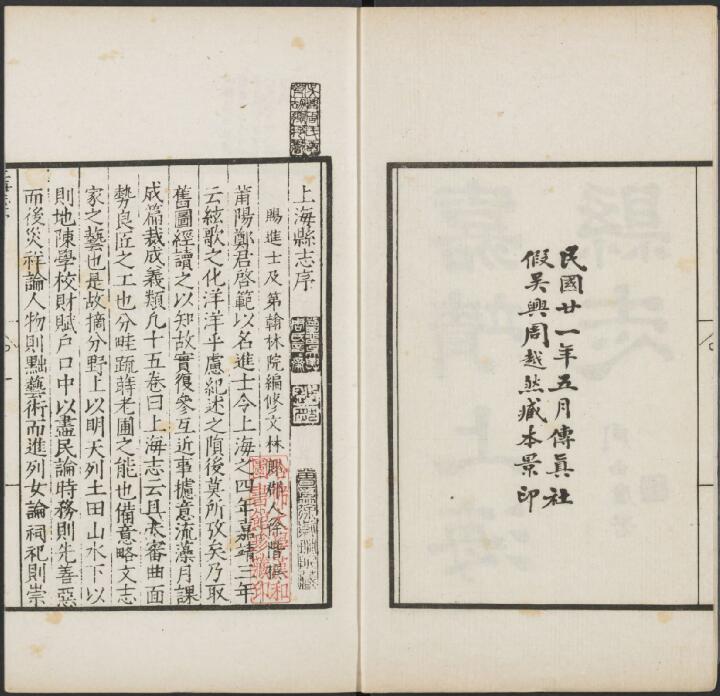 民國廿一年五月傳真社
假吳興周越然藏本景印
上海縣志序
賜進士及第翰林院編修文林郎郡人徐階撰
莆陽鄭君啓範以名進士令上海之四年嘉靖三年
云絃歌之化洋洋乎慮紀述之隕後莫所攷矣乃取
舊圖經讀之以知故實復參互近事攄意流藻月課
成篇裁成義類凡十五卷曰上海志云且夫審曲面
勢良匠之工也分畦疏蒔老圃之能也備意略文志
家之藝也是故摘分野上以明天列土田山水下以
則地陳學校財賦戶口中以盡民論時務則先善惡
而後災祥論人物則黜藝術而進列女論祠祀則崇